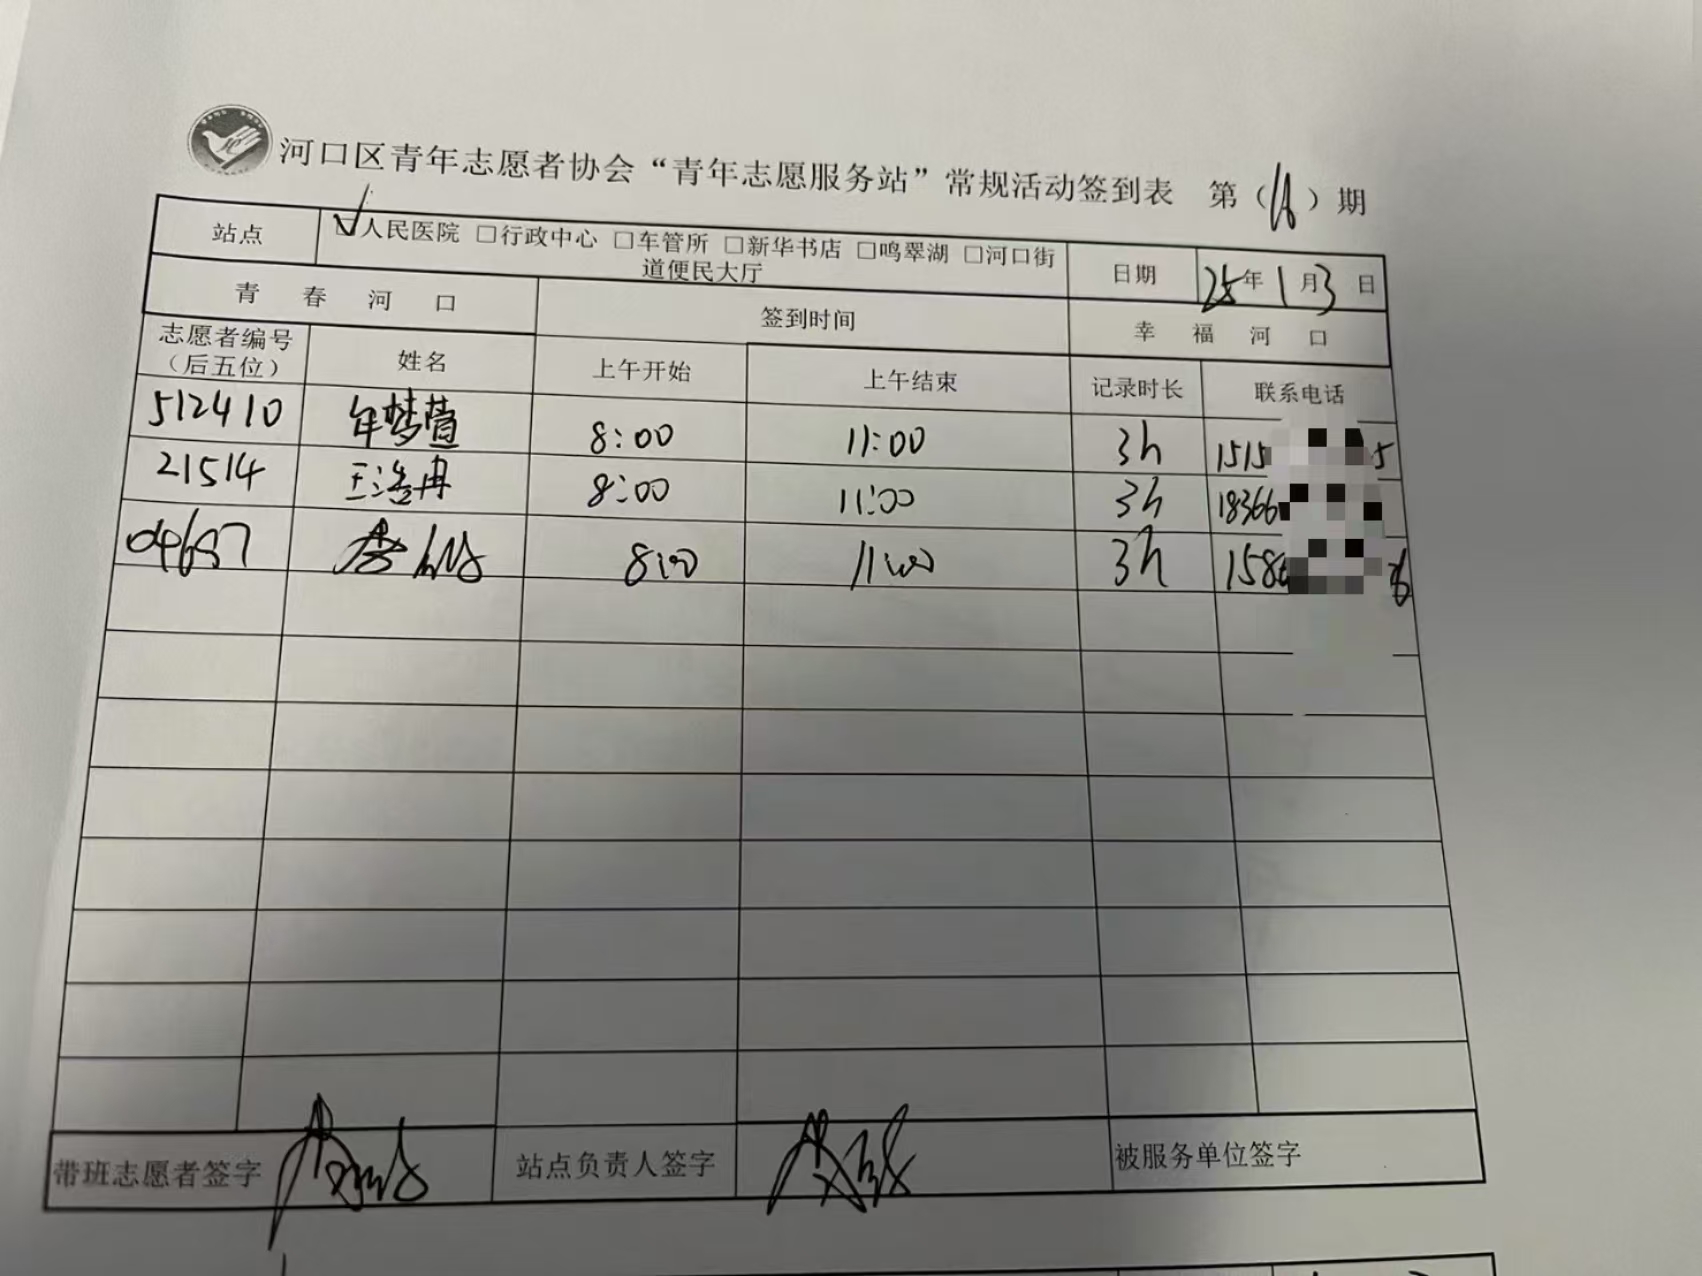 河口区青年志愿者协会“青年志愿服务站”常规活动签到表 第（16）期
站点 ☑人民医院 □行政中心 □车管所 □新华书店 □鸣翠湖 □河口街道便民大厅 日期 25年1月3日
青春河口 签到时间 幸福河口
志愿者编号（后五位） 姓名 上午开始 上午结束 记录时长 联系电话
512410 年梦萱 8:00 11:00 3h 1515 5
21514 王浩冉 8:00 11:00 3h 18366
04657 8:00 11:00 3h 158 6
带班志愿者签字 站点负责人签字 被服务单位签字